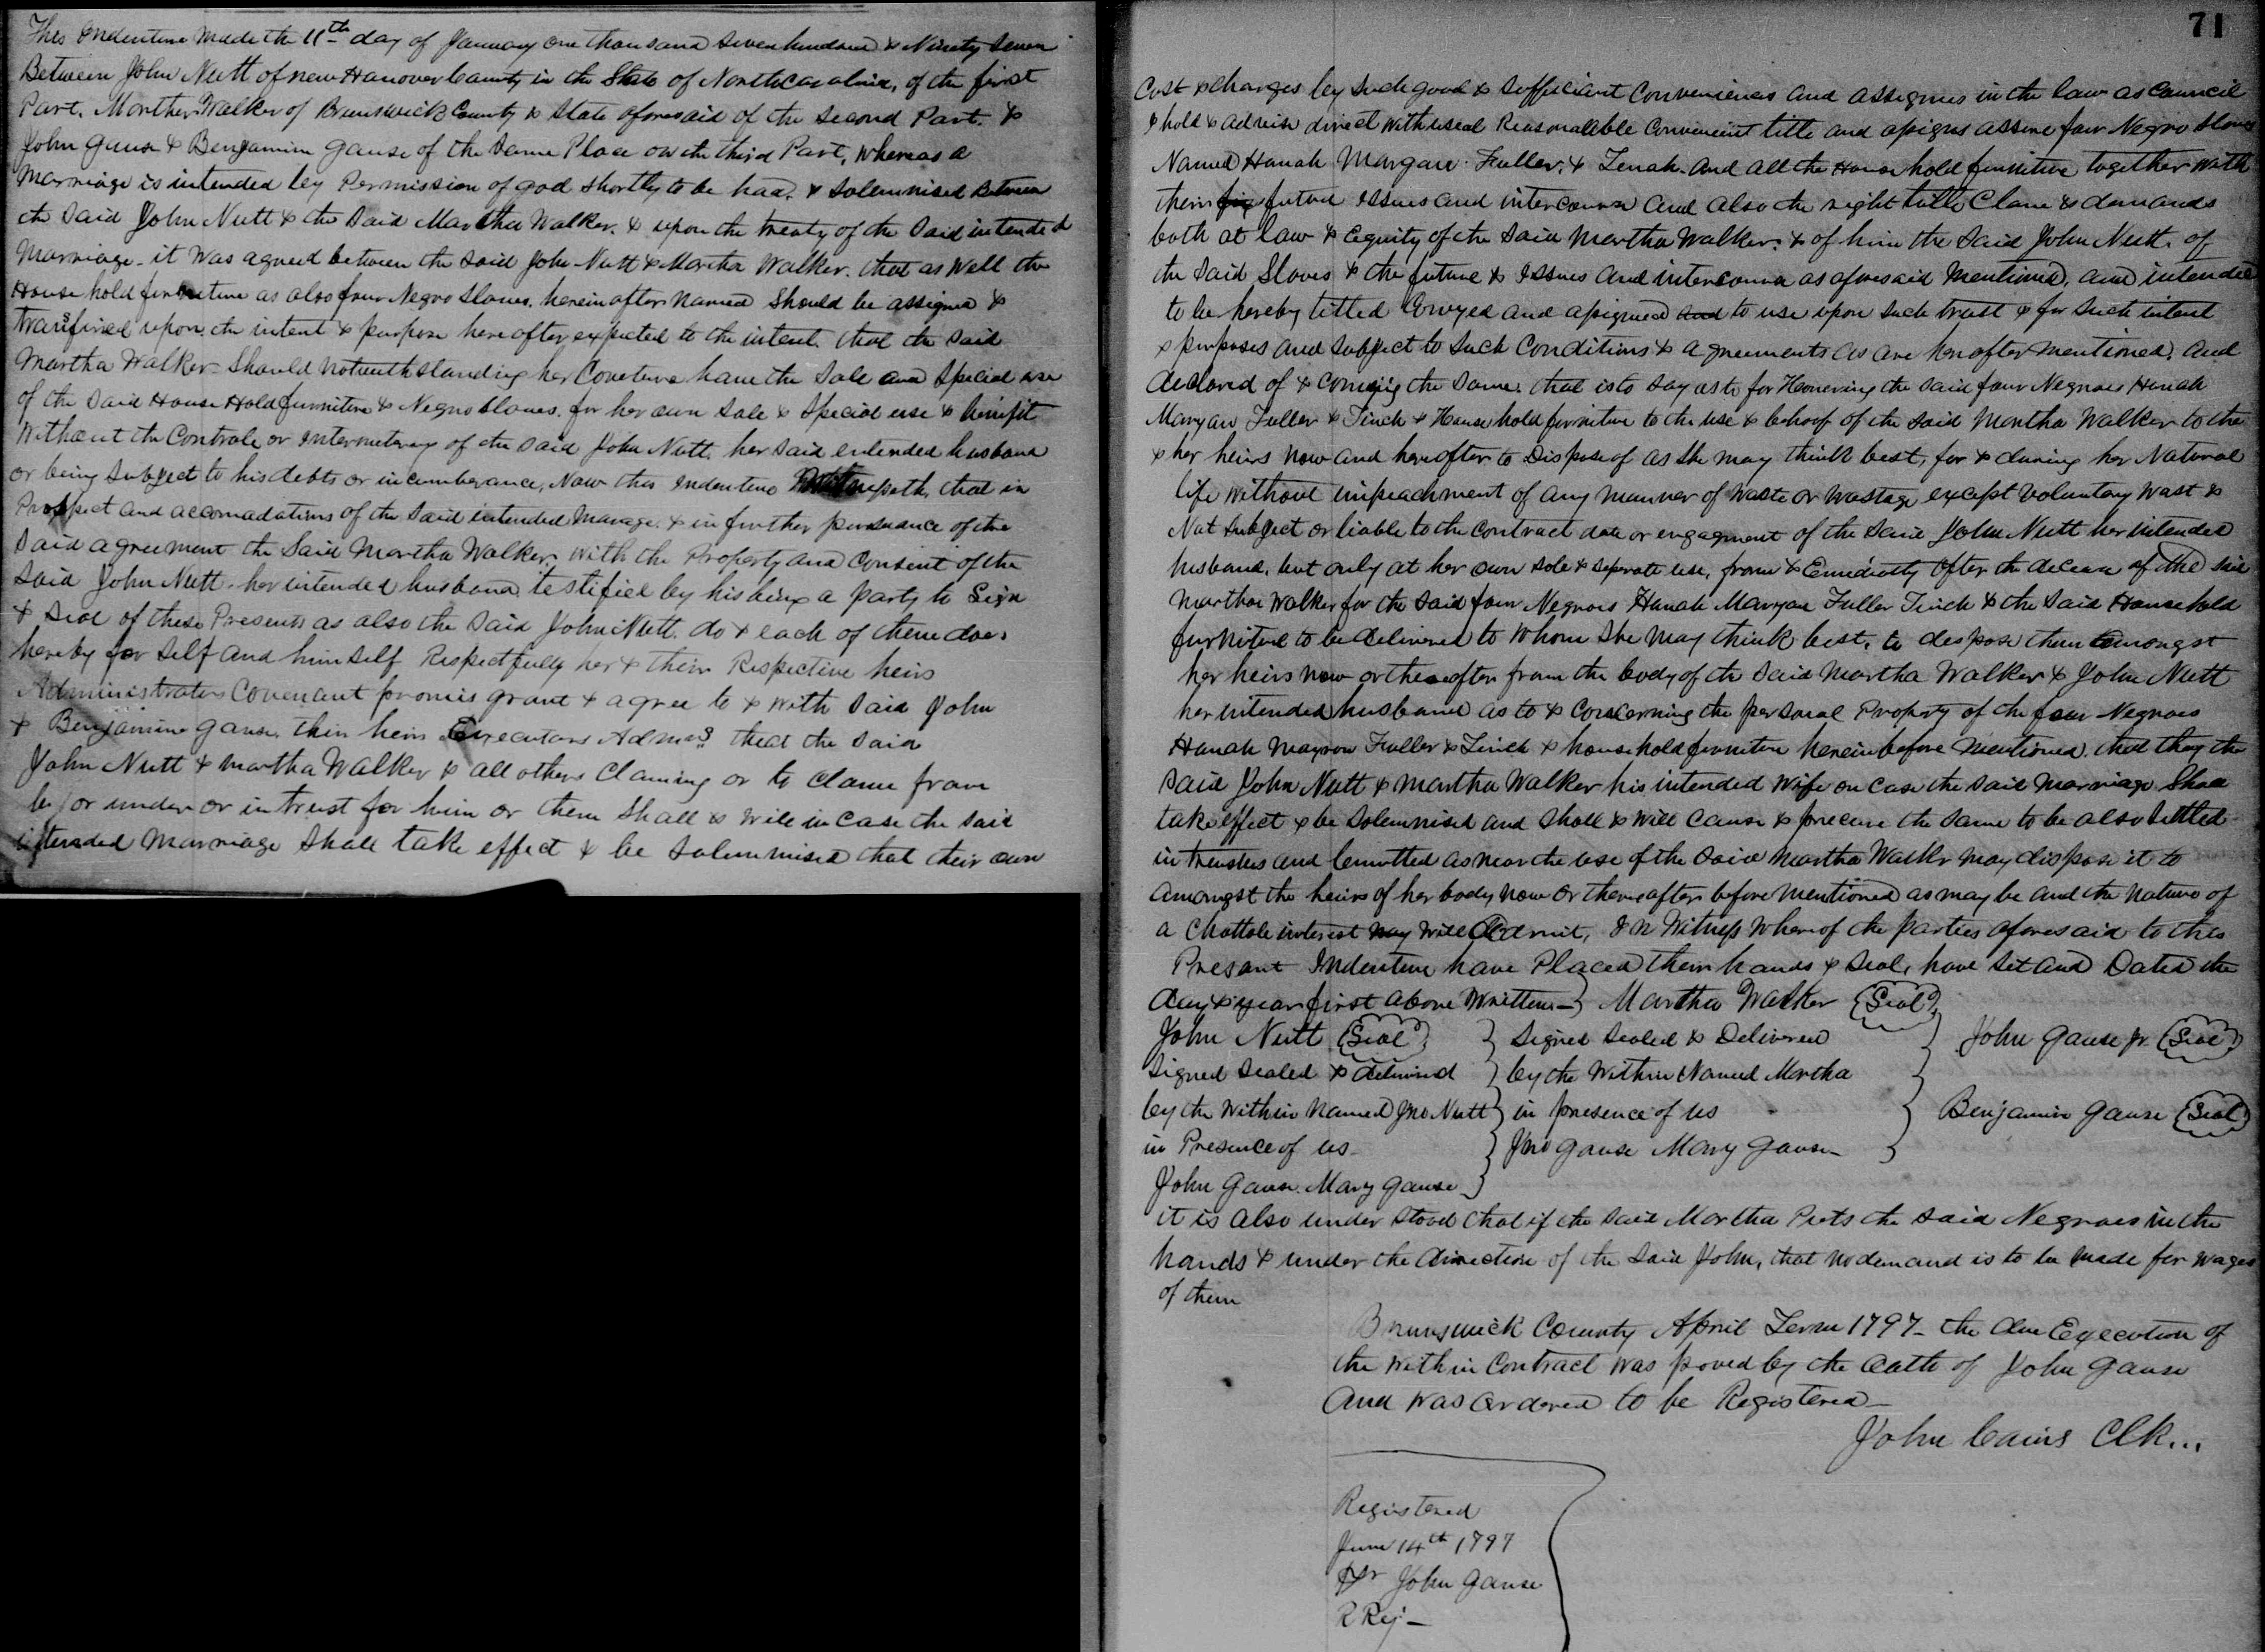 This Indenture Made the 11th day of January one thousand Seven hundred & Ninety Seven
Between John Nutt of new Hanover County in the State of North Carolina, of the first
Part. Marther Walker of Brunswick County & State aforesaid of the Second Part. &
John Gause & Benjamin Gause of the Same Place on the third Part, Whereas a
Marriage is intended by Permission of god Shortly to be had. & Solemnised Between
the Said John Nutt & the Said Martha Walker. & upon the treaty of the Said intended
Marriage. it was agreed between the Said John Nutt & Martha Walker. that as Well the
House hold furniture as also four Negro Slaves. herein after Named Should be assigned &
transfired upon. the intent & purpose here after expected to the intent. that the Said
Martha Walker Should notwithstanding her Coveture have the Sole and Special use
of the Said House Hold furniture & Negro Slaves. for her own Sole & Special use & binifit
Without the Controle or Intermetering of the Said John Nutt. her Said entended husband
or being Subject to his debts or incumberance, Now this Indenture that in
Prospect and accomadations of the Said intended Marage. & in further pursuance of the
Said agreement the Said Martha Walker. With the Property and Consent of the
Said John Nutt. her intended husband testified by his being a party to Sign
& Seal of these Presents as also the Said John Nutt. do & each of them does
hereby for Self and himself Respectfully her & their Respective heirs
Administrators Covenant promis grant & agree to & with Said John
& Benjamine Gause. their heirs Executors Admrs that the Said
John Nutt & Martha Walker & all others Claming or to Clame from
by or under or in trust for him or them Shall & Will in Case the Said
intended Marriage Shall take effect & be Solemnised that their own
71
Cost & Charges by Such good & Sufficient Conveniences and assignes in the law as Council
& hold & advise direct With Reasonable Convenient title and asigns four Negro Slaves
Named Hanah Margare Fuller. & Tenah. and all the House hold furniture together With
their future Issues and intercourse and also the right title Clame & demands
both at law & Equity of the Said Martha Walker. & of him the Said John Nutt. of
the Said Slaves & the future & Issues and intercourse as aforesaid Mentioned, and intended
to be hereby titled Convyed and asigned and to use upon Such trust & for Such intent
& purposes and Subject to Such Conditions & agreements as are herafter Mentioned. and
declared of & the Same. that is to Say as to for the Said four Negroes Hanah
Maryan Fuller & Tinch & House hold furniture to the use & behoof of the Said Martha Walker to the
& her heirs now and hereafter to Dispose of as She may think best, for & during her Natural
life Without impeachment of any Manner of Waste or Wastage except Voluntary Wast &
Not Subject or liable to the Contract date or engagment of the Said John Nutt her intended
husband. but only at her own Sole & Seperate use, from & Emediatly after the decease of the Said
Martha Walker for the Said four Negroes Hanah Maryan Fuller Tinch & the Said Household
furniture to be delivered to Whom She may think best. to despose them amongst
her heirs now or thereafter from the body of the Said Martha Walker & John Nutt
her intended husband as to & Concerning the personal Property of the four Negroes
Hanah Mayran Fuller & Tinch & household furniture herein before Mentioned. that they the
Said John Nutt & Martha Walker his intended Wife on Case the Said Marriage Shall
take effect & be Solemnised and Shall & Will Cause & procure the Same to be also Settled
in trustees and as near the use of the Said Martha Walker may dispose it to
amongst the heirs of her body now or thereafter before Mentioned as may be and the nature of
a Chattole interest may Will Admit, In Witness Whereof the parties aforesaid to this
Presant Indenture have Placed their hands & Seal, have Set and Dated the
day & year first above Written— } Martha Walker {Seal}
John Nutt {Seal} } Signed Sealed & Delivered } John Gause Jr. {Seal}
Signed Sealed & delivered } by the Within Named Martha
by the Within Named Jno Nutt } in presence of us } Benjamin Gause {Seal}
in Presence of us } Jno Gause Mary Gause
John Gause. Mary Gause }
it is also under Stood that if the Said Martha Puts the Said Negroes in the
hands & under the direction of the Said John, that no demand is to be Made for Wages
of them
Brunswick County April Term 1797— the due Execution of
the Within Contract Was proved by the Oath of John Gause
and Was ordered to be Registered—
John Cains Clk...
Registered
June 14th 1797
Pr John Gause
R Reg—